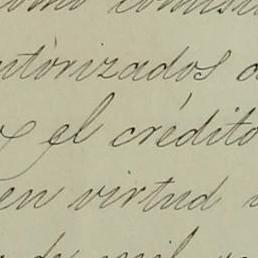 como comisi
autòrizados d
y el crédito
en virtud
de mil